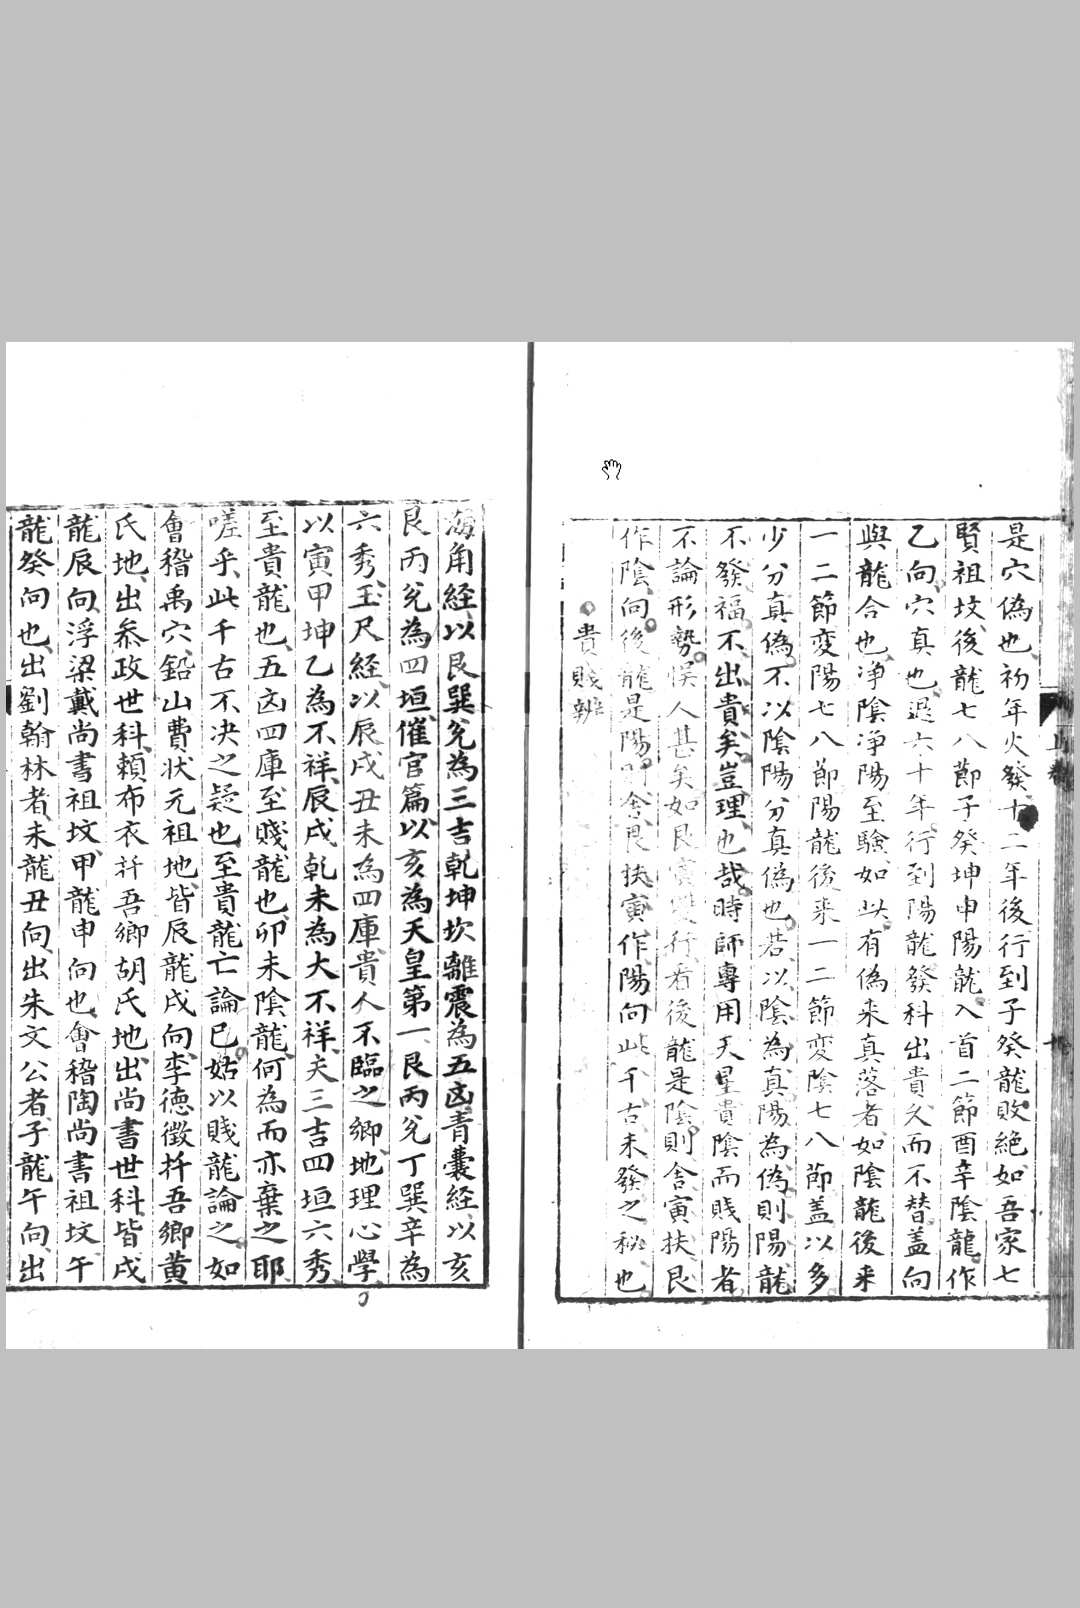 是穴偽也初年火發十二年後行到子癸龍敗絕如吾家七
賢祖坟後龍七八節子癸坤申陽龍入首二節酉辛陰龍作
乙向穴真也退六十年行到陽龍發科出貴久而不替蓋向
與龍合也净陰净陽至驗如此有偽来真落者如陰龍後来
一二節变陽七八節陽龍後来一二節变陰七八節盖以多
少分真偽不以陰陽分真偽也若以陰為真陽為偽則陽龍
不發福不出貴矣豈理也哉時師專用天星貴陰而賤陽者
不論形勢悮人甚矣如艮寅雙行看後龍是陰則舍寅扶艮
作陰向後龍是陽則舍艮扶寅作陽向此千古未發之秘也
貴賤辨
海角經以艮巽兊為三吉乾坤坎離震為五凶青囊經以亥
艮丙兊為四垣催官篇以亥為天皇第一艮丙兊丁巽辛為
六秀玉尺經以辰戌丑未為四庫貴人不臨之鄉地理心學
以寅甲坤乙為不祥辰戌乾未為大不祥夫三吉四垣六秀
至貴龍也五凶四庫至賤龍也卯未陰龍何為而亦棄之耶
嗟乎此千古不决之疑也至貴龍亡論已姑以賤龍論之如
會稽禹穴鉛山費状元祖地皆辰龍戌向李德徵扦吾鄉黄
氏地出叅政世科賴布衣扦吾鄉胡氏地出尚書世科皆戌
龍辰向浮梁戴尚書祖坟甲龍申向也會稽陶尚書祖坟午
龍癸向也出劉翰林者未龍丑向出朱文公者子龍午向出